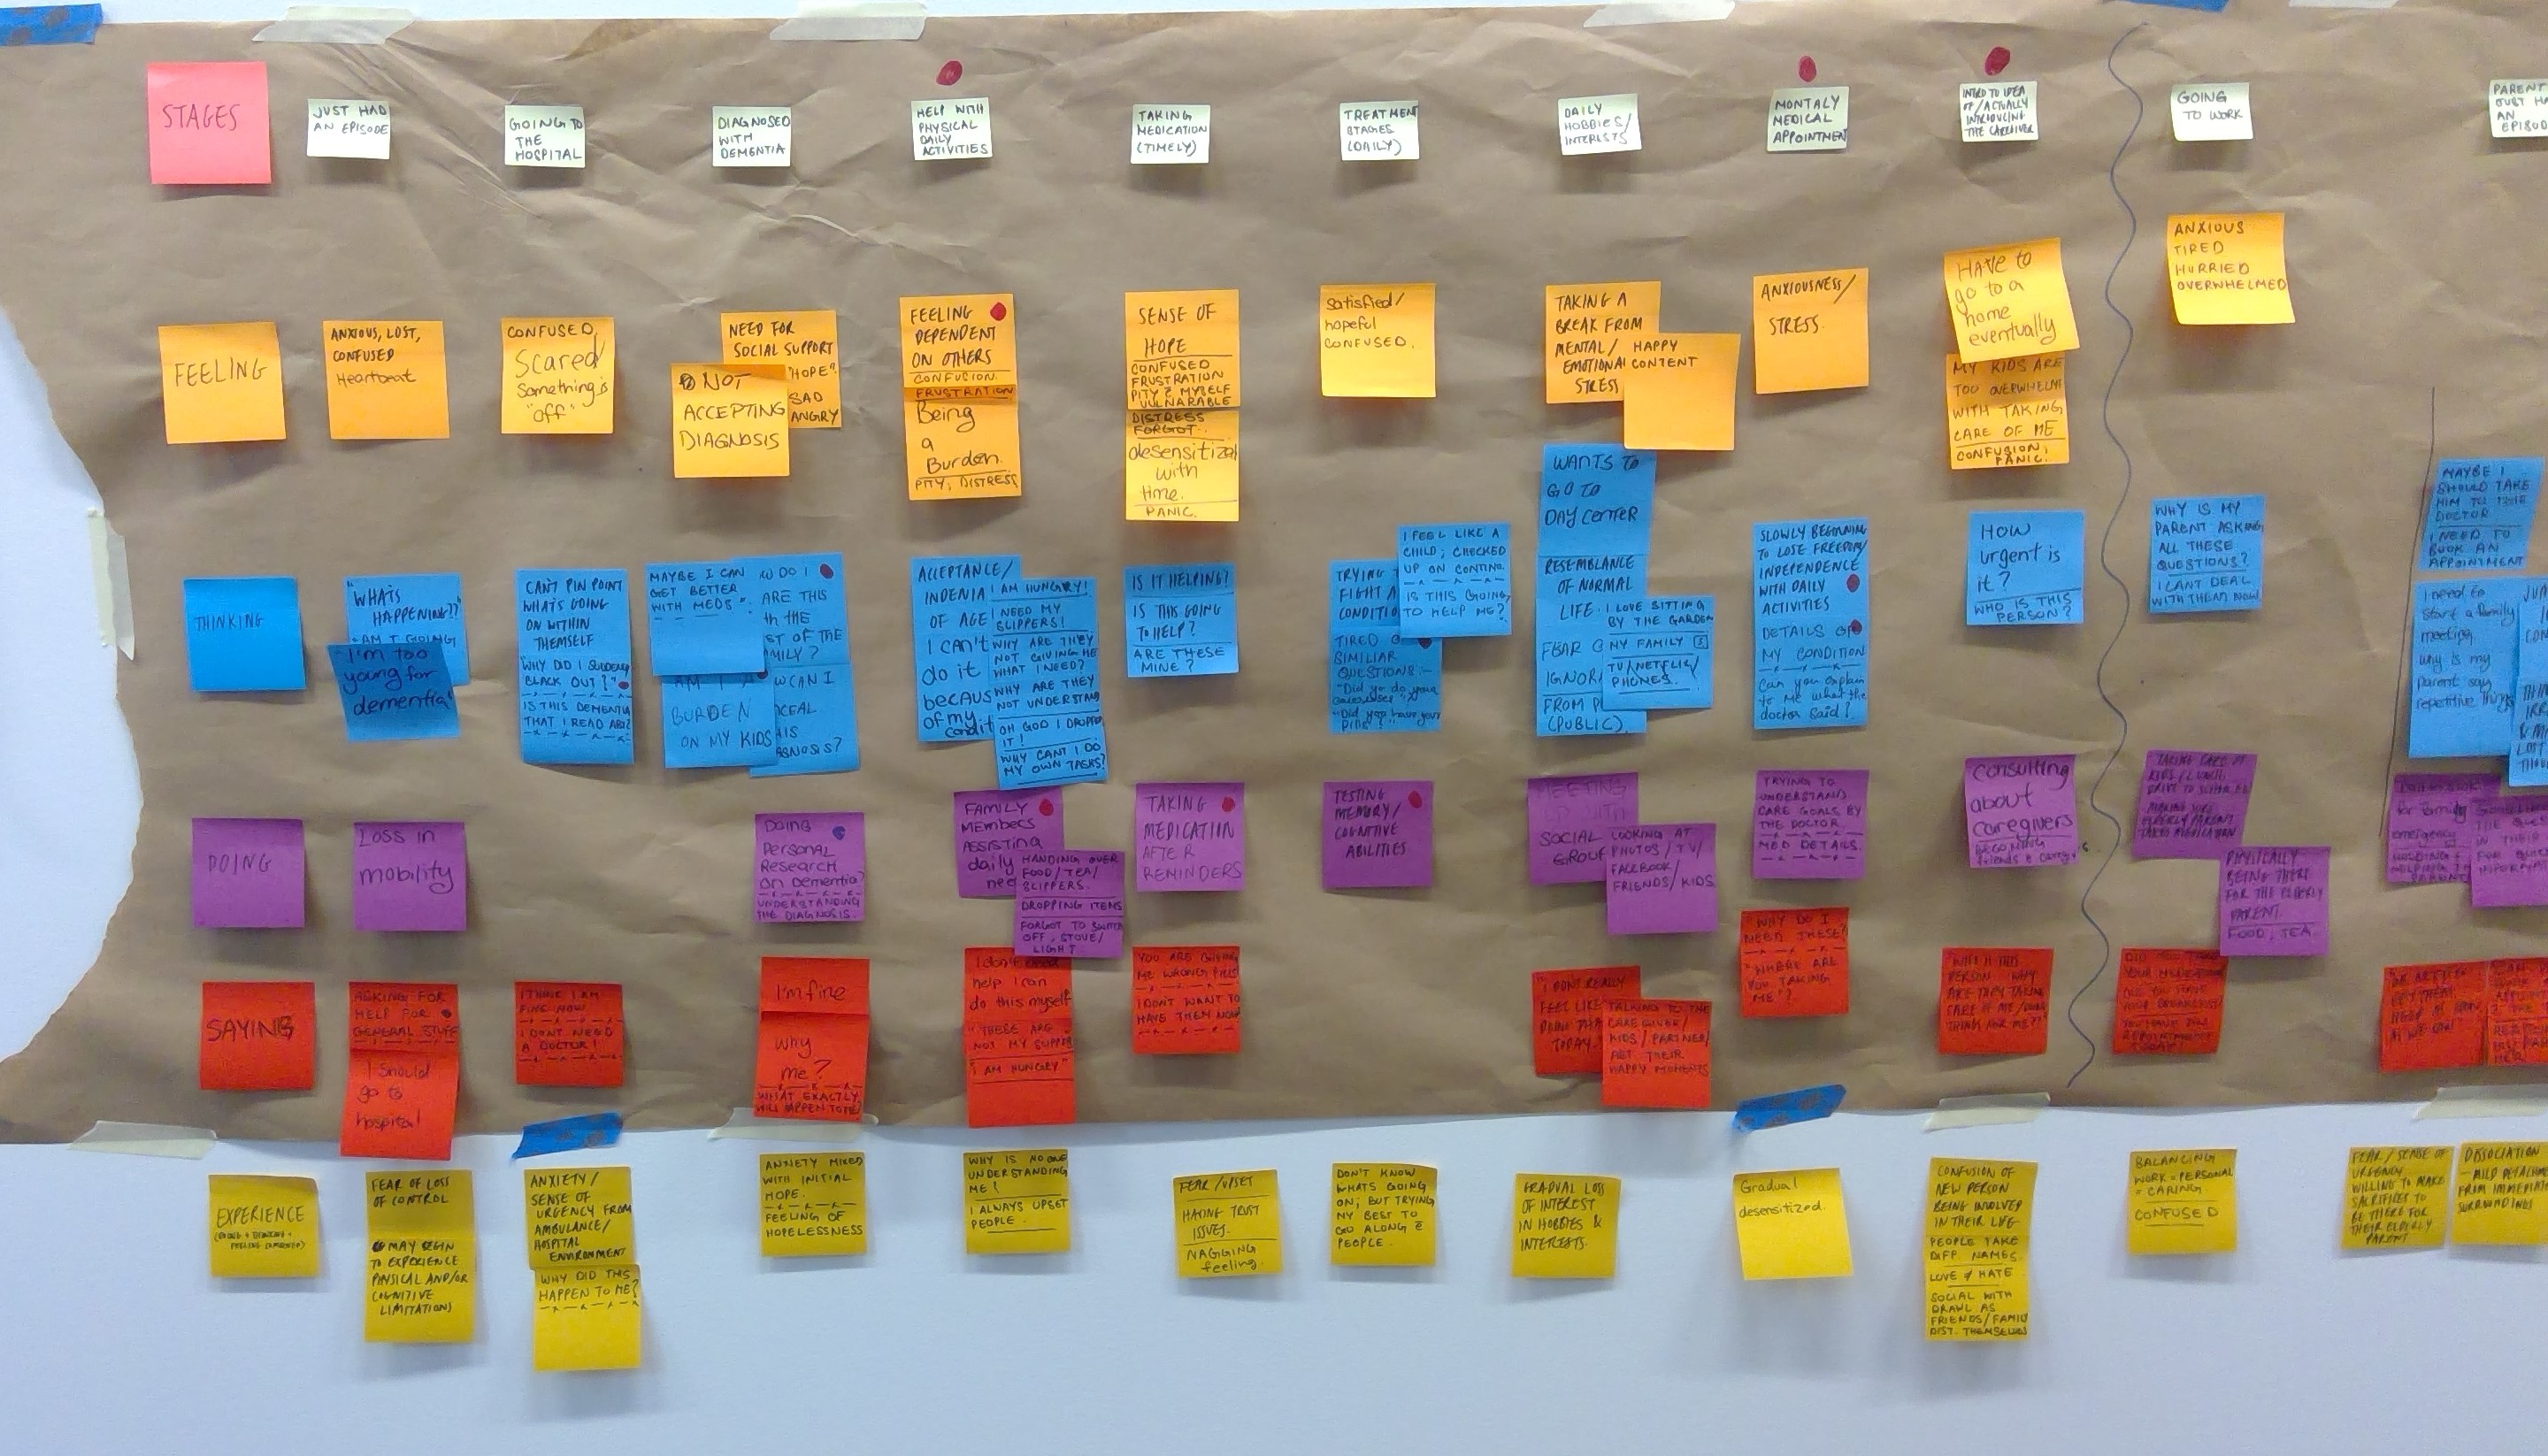 STAGES
JUST HAD
AN EPISODE
GOING TO
THE
HOSPITAL
DIAGNOSED
WITH
DEMENTIA
HELP WITH
PHYSICAL
DAILY
ACTIVITIES
TAKING
MEDICATION
(TIMELY)
TREATMENT
STAGES
(DAILY)
DAILY
HOBBIES/
INTERESTS
MONTALY
MEDICAL
APPOINTMENT
INTRO TO IDEA
OF/ACTUALLY
INTRODUCING
THE CAREGIVER
GOING
TO WORK
PARENT
JUST HA
AN
EPISOD
FEELING
ANXIOUS, LOST,
CONFUSED
Heartbeat
CONFUSED,
Scared/
Something is
"off"
NEED FOR
SOCIAL SUPPORT
"HOPE".
SAD
ANGRY
NOT
ACCEPTING
DIAGNOSIS
FEELING
DEPENDENT
ON OTHERS
CONFUSION.
FRUSTRATION
Being
a
Burden.
PITY, DISTRESS
SENSE OF
HOPE
CONFUSED
FRUSTRATION
PITY MYSELF
VULNARABLE
DISTRESS
FORGOT.
desensitized
with
time.
PANIC.
Satisfied/
hopeful
CONFUSED.
TAKING A
BREAK FROM
MENTAL/
EMOTIONAL
STRESS
HAPPY
CONTENT
ANXIOUSNESS/
STRESS.
HAVE to
go to a
home
eventually
MY KIDS ARE
TOO OVERWHELM
WITH TAKING
CARE OF ME
CONFUSION,
PANIC.
ANXIOUS
TIRED
HURRIED
OVERWHELMED
THINKING
"WHATS
HAPPENING??"
AM I GOING
I'm too
young for
dementia
CAN'T PIN POINT
WHATS GOING
ON WITHIN
THEMSELF
"WHY DID I SUDDENLY
BLACK OUT?"
IS THIS DEMENTIA
THAT I READ ABT?
MAYBE I CAN
GET BETTER
WITH MEDS".
W DO I
ARE THIS
th THE
ST OF THE
MILY?
AM I A
BURDEN
ON MY KIDS
W CAN I
CEAL
HIS
GNOSIS?
ACCEPTANCE/
INDENIA
OF AGE
I can't
do it
becaus
of my
condit
I AM HUNGRY!
I NEED MY
SLIPPERS!
WHY ARE THEY
NOT GIVING ME
WHAT I NEED?
WHY ARE THEY
NOT UNDERSTAND
OH GOD I DROPPED
IT!
WHY CANT I DO
MY OWN TASKS?
IS IT HELPING?
IS THIS GOING
TO HELP?
ARE THESE
MINE?
TRYING
FIGHT A
CONDITIO
TIRED O
SIMILIAR
QUESTIONS:-
I FEEL LIKE A
CHILD; CHECKED
UP ON CONTINO.
IS THIS GOING
TO HELP ME?
WANTS TO
GO TO
DAY CENTER
RESEMBLANCE
OF NORMAL
LIFE.
FEAR O
IGNOR
FROM P
(PUBLIC).
I LOVE SITTING
BY THE GARDEN
MY FAMILY
TV/NETFLIX/
PHONES.
SLOWLY BEGINNING
TO LOSE FREEDOM/
INDEPENDENCE
WITH DAILY
ACTIVITIES
DETAILS OF
MY CONDITION
Can you explain
to me what the
doctor said?
HOW
urgent is
it?
WHO IS THIS
PERSON?
WHY IS MY
PARENT ASKING
ALL THESE
QUESTIONS?
I CANT DEAL
WITH THEM NOW
MAYBE I
SHOULD TAKE
HIM TO THE
DOCTOR
I NEED TO
BOOK AN
APPOINTMENT
I need to
start a family
meeting,
why is my
parent say
repetitive things
DOING
Loss in
mobility
Doing
Personal
Research
on Dementia?
UNDERSTANDING
THE DIAGNOSIS.
FAMILY
MEMBERS
ASSISTING
daily
nee
HANDING OVER
FOOD/TEA/
SLIPPERS.
DROPPING ITEMS
FORGOT TO SWITCH
OFF, STOVE/
LIGHT
TAKING
MEDICATION
AFTER
REMINDERS
TESTING
MEMORY/
COGNITIVE
ABILITIES
MEETING
UP WITH
SOCIAL
GROUP
LOOKING AT
PHOTOS/TV/
FACEBOOK/
FRIENDS/KIDS
TRYING TO
UNDERSTAND
CARE GOALS BY
THE DOCTOR
MED DETAILS.
Consulting
about
caregivers
PHYSICALLY
BEING THERE
FOR THE ELDERLY
PARENT.
FOOD, TEA.
SAYING
ASKING FOR
HELP FOR
GENERAL STUFF
I should
go to
hospital
I THINK I AM
FINE NOW
I DONT NEED
A DOCTOR!
I'm fine
Why
me?
WHAT EXACTLY
WILL HAPPEN TO ME
I don't need
help I can
do this myself
"THESE ARE
NOT MY SLIPPER
"I AM HUNGRY"
YOU ARE GIVING
ME WRONG PILLS!
I DONT WANT TO
HAVE THEM NOW
"I DONT REALLY
FEEL LIKE
DOING THA
TODAY.
TALKING TO THE
CARE GIVER/
KIDS/PARTNER/
ABT THEIR
HAPPY MOMENTS
"WHY DO I
NEED THESE?
"WHERE ARE
YOU TAKING
ME"?
EXPERIENCE
FEAR OF LOSS
OF CONTROL
MAY BEGIN
TO EXPERIENCE
PHYSICAL AND/OR
COGNITIVE
LIMITATIONS
ANXIETY/
SENSE OF
URGENCY FROM
AMBULANCE/
HOSPITAL
ENVIRONMENT
WHY DID THIS
HAPPEN TO ME?
ANXIETY MIXED
WITH INITIAL
HOPE.
FEELING OF
HOPELESSNESS
WHY IS NO ONE
UNDERSTANDING
ME?
I ALWAYS UPSET
PEOPLE.
FEAR/UPSET
HAVING TRUST
ISSUES.
NAGGING
feeling.
DON'T KNOW
WHATS GOING
ON; BUT TRYING
MY BEST TO
GO ALONG
PEOPLE.
GRADUAL LOSS
OF INTEREST
IN HOBBIES &
INTERESTS.
Gradual
desensitized.
CONFUSION OF
NEW PERSON
BEING INVOLVED
IN THEIR LIFE
PEOPLE TAKE
DIFF. NAMES.
LOVE & HATE
SOCIAL WITH
DRAWL AS
FRIENDS/FAMILY
DIST. THEMSELVES
BALANCING
WORK = PERSONAL
= CARING
CONFUSED
FEAR/SENSE OF
URGENCY
WILLING TO MAKE
SACRIFICES TO
BE THERE FOR
THEIR ELDERLY
PARENT
DISSOCIATION
- MILD DETACHM
FROM IMMEDIATE
SURROUNDINGS